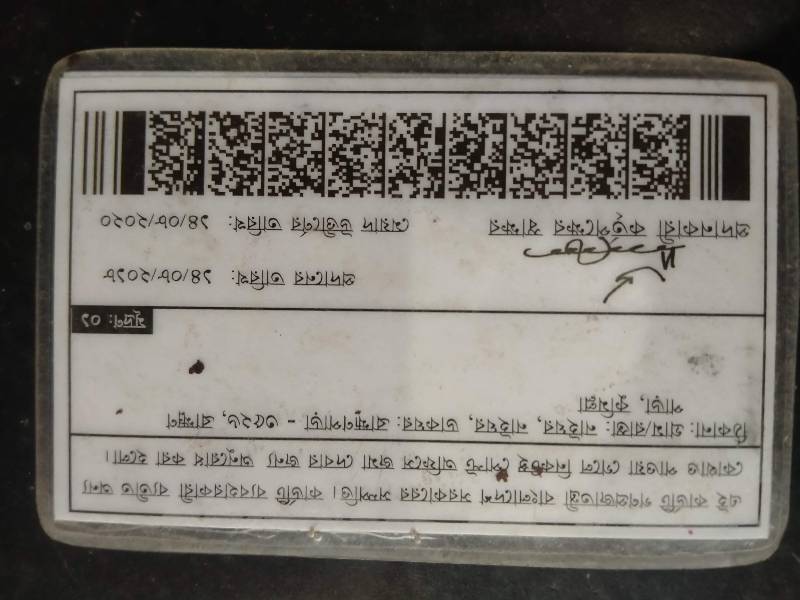 এই কার্ডটি গণপ্রজাতন্ত্রী বাংলাদেশ সরকারের সম্পত্তি। কার্ডটি ব্যবহারকারী ব্যতীত অন্য
কোথাও পাওয়া গেলে নিকটস্থ পোস্ট অফিসে জমা দেবার জন্য অনুরোধ করা হলো।
ঠিকানা: গ্রাম/রাস্তা: নাইঘর, নাইঘর, ডাকঘর: ব্রাহ্মণপাড়া - ৩৫২৬, ব্রাহ্মণ
পাড়া, কুমিল্লা
মুদ্রণ: ০১
প্রদানের তারিখ: ১৪/০৮/২০১৮
প্রদানকারী কর্তৃপক্ষের স্বাক্ষর মেয়াদ উত্তীর্ণের তারিখ: ১৪/০৮/২০২০